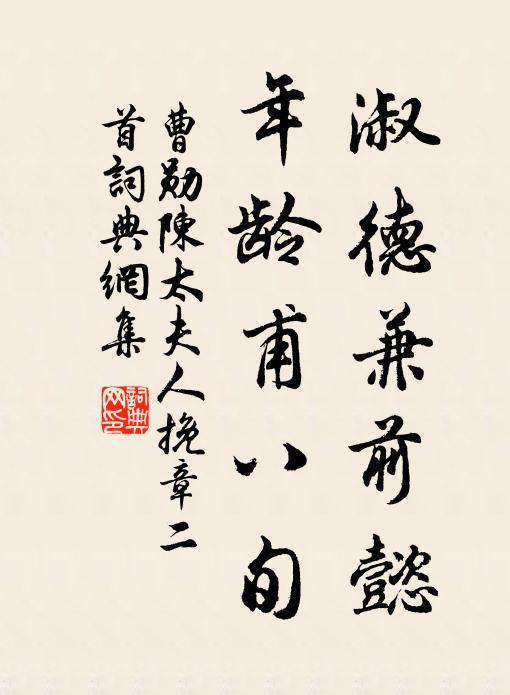 淑德兼前懿
年龄甫八旬
曹勛陳太夫人挽章二
首詞典網集
詞典网印